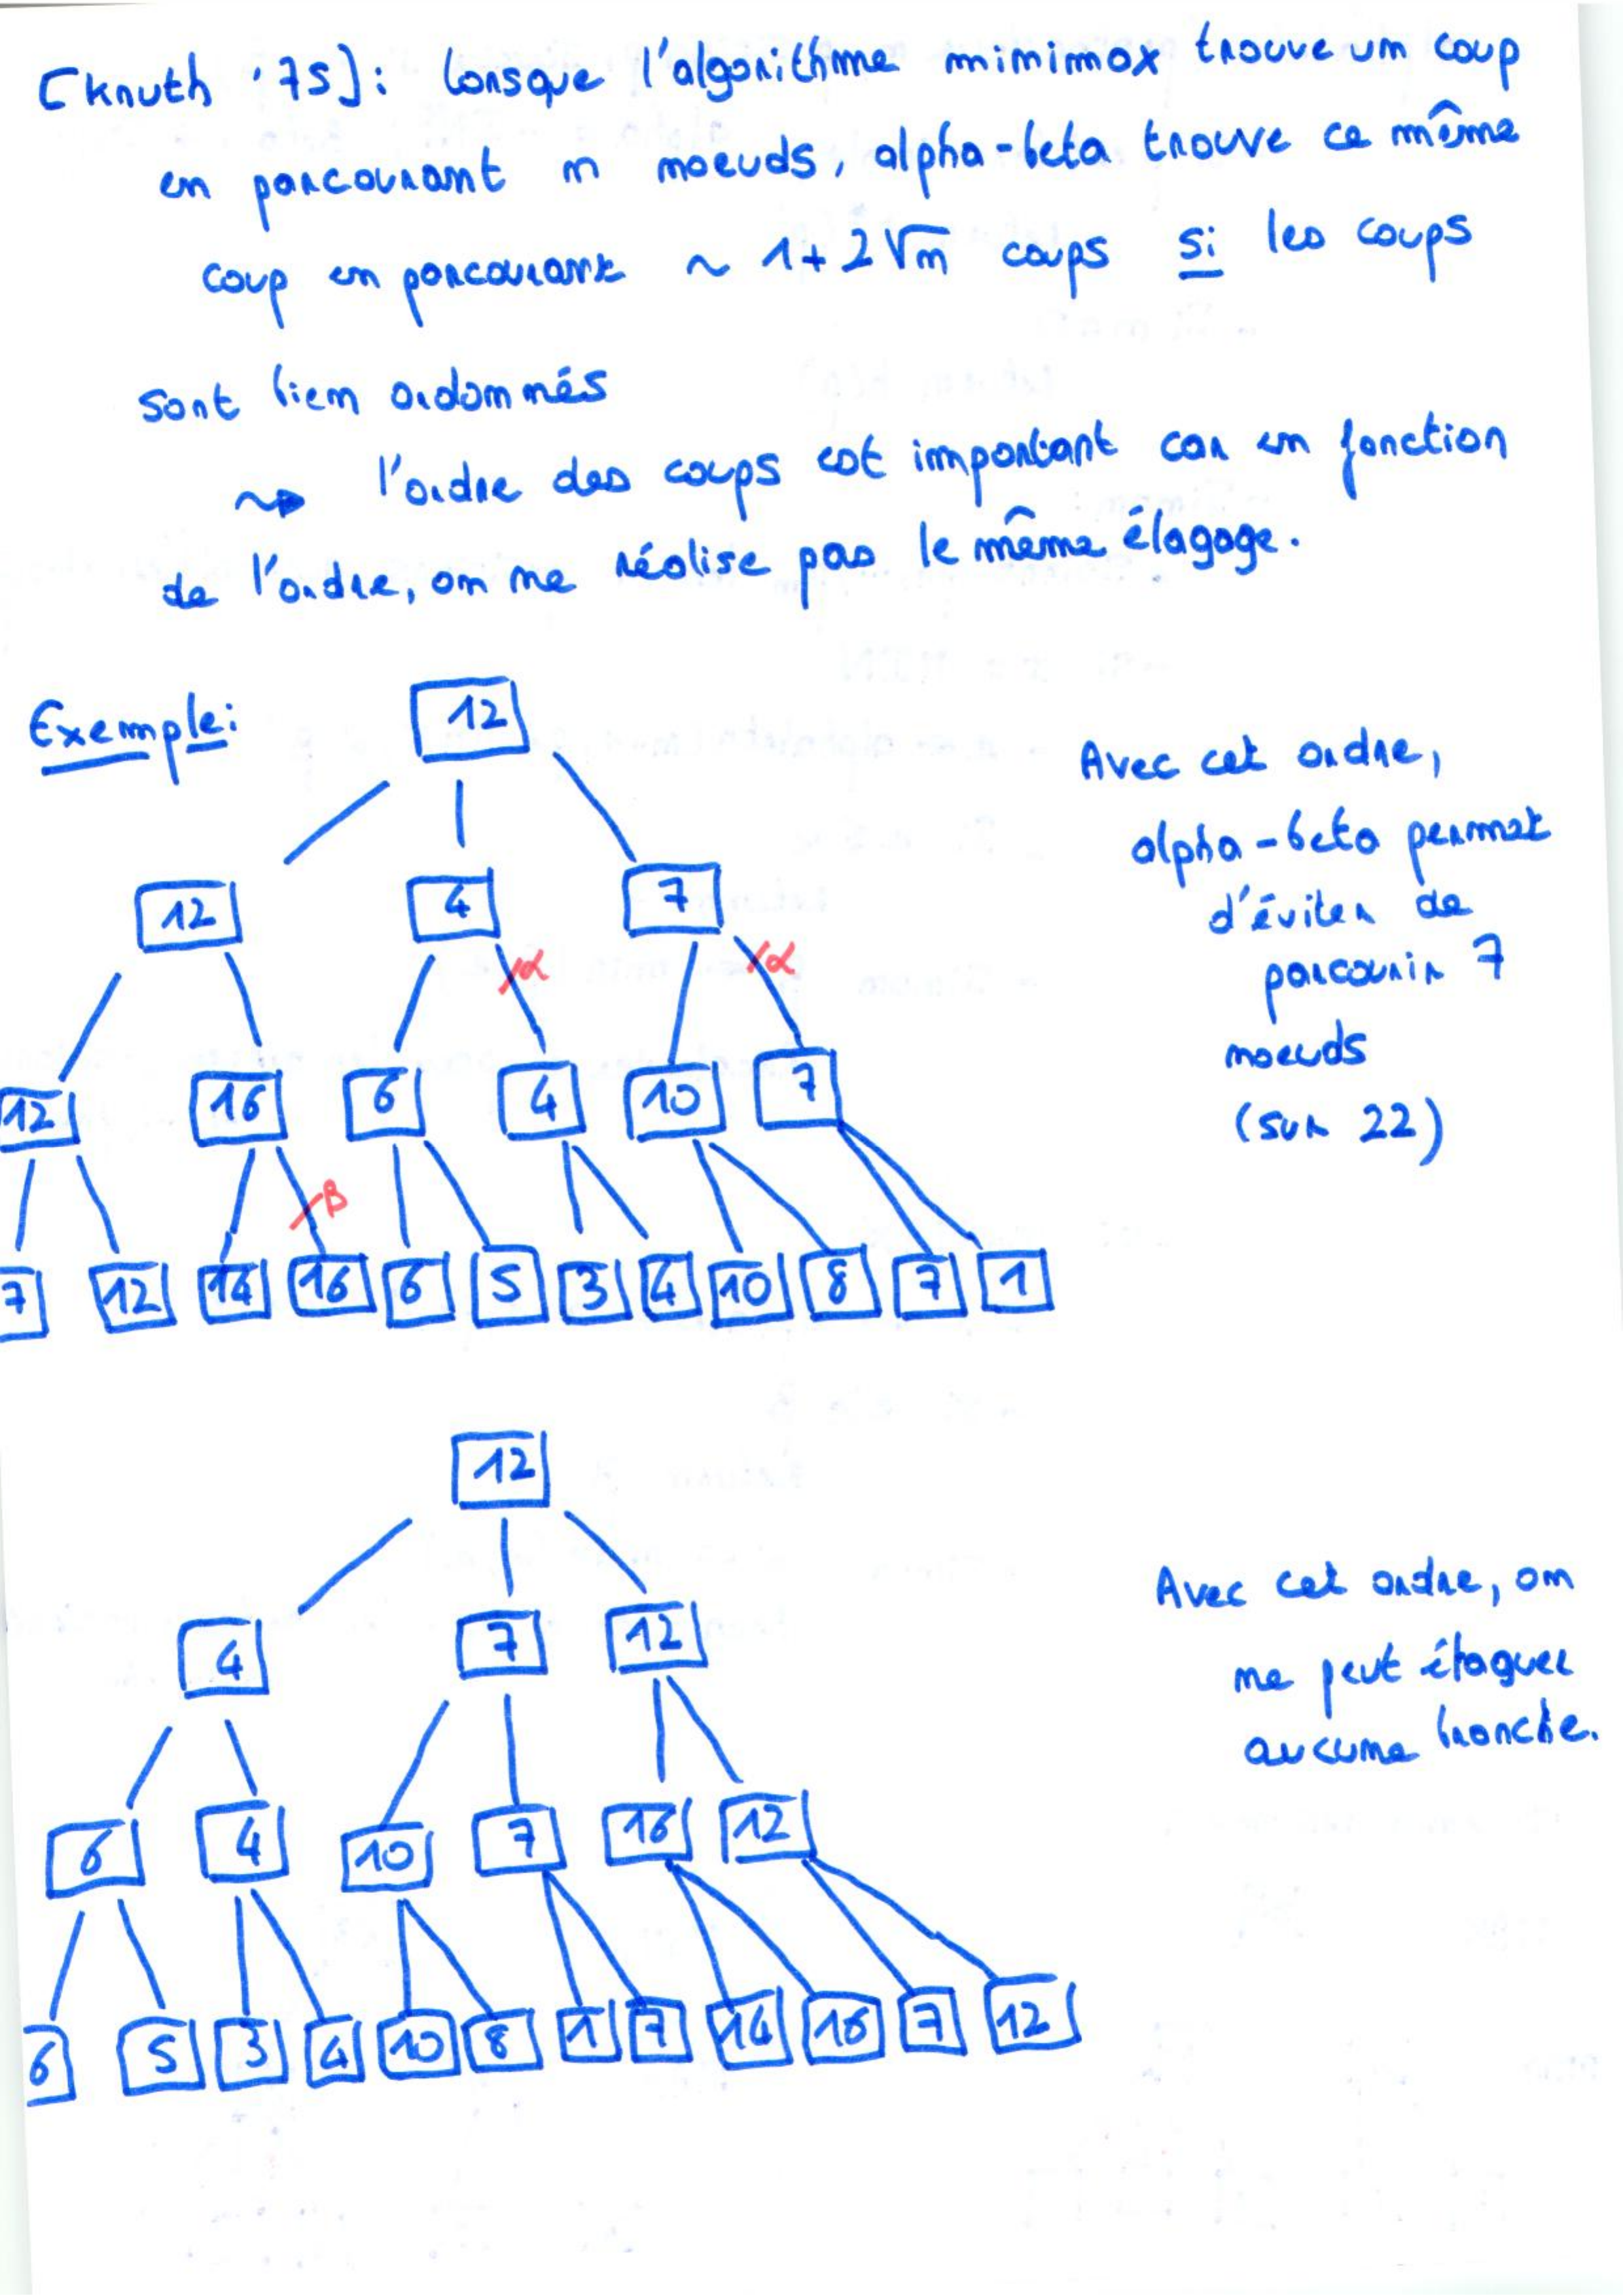 [Knuth '75]: lorsque l'algorithme minimax trouve un coup
en parcourant n noeuds, alpha-beta trouve ce même
coup en parcourant ~ 1+2√n coups si les coups
sont bien ordonnés
~> l'ordre des coups est important car en fonction
de l'ordre, on ne réalise pas le même élagage.
Exemple:
12
12 4 7
α α
12 16 6 4 10 7
β
7 12 14 16 6 5 3 4 10 8 7 1
Avec cet ordre,
alpha-beta permet
d'éviter de
parcourir 7
noeuds
(sur 22)
12
4 7 12
6 4 10 7 16 12
6 5 3 4 10 8 1 7 14 16 7 12
Avec cet ordre, on
ne peut élaguer
aucune branche.